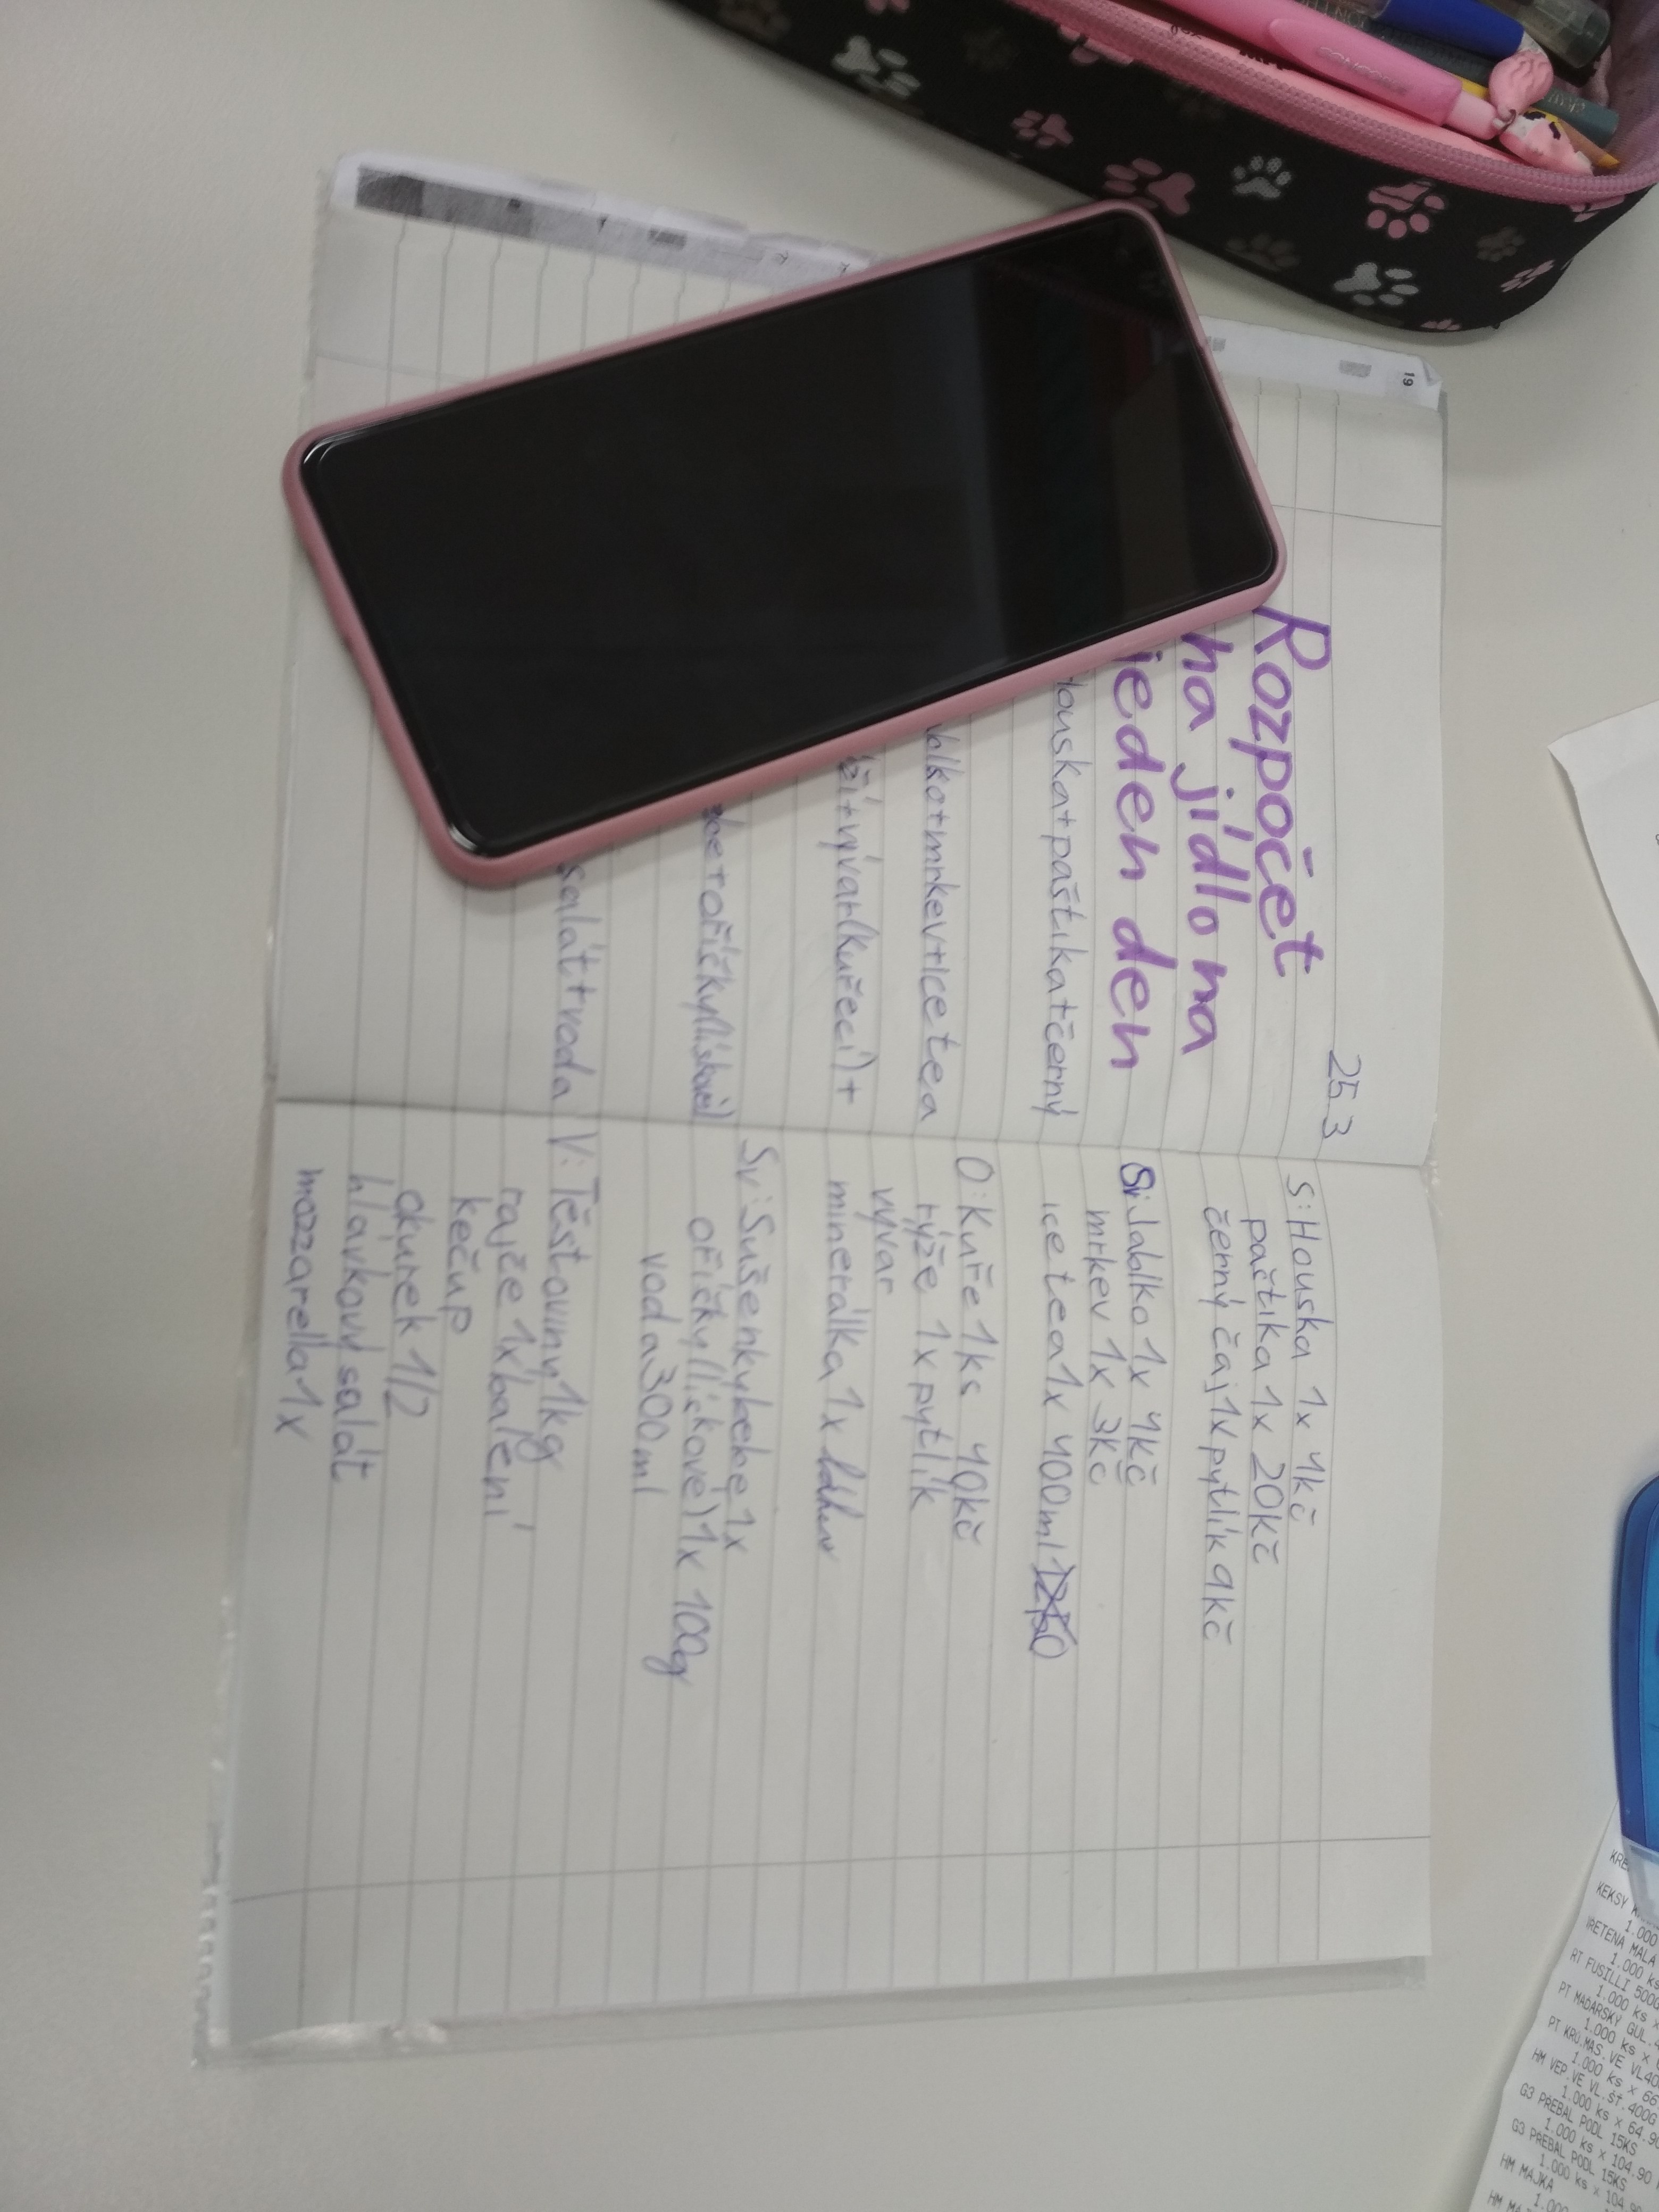 25.3
Rozpočet
na jídlo na
jeden den
houska+paštika+černý
jablko+mrkev+ice tea
vývar(kuřecí)+
oříšky(lískové)
salát+voda
S: Houska 1x 4kč
paštika 1x 20kč
černý čaj 1x pytlík 9kč
Sv: Jablko 1x 4kč
mrkev 1x 3kč
ice tea 1x 400ml
O: Kuře 1ks 40kč
rýže 1x pytlík
vývar
minerálka 1x
Sv: Sušenky bebe 1x
oříšky(lískové) 1x 100g
voda 300ml
V: Těstoviny 1kg
rajče 1x balení
kečup
okurek 1/2
hlávkový salát
mozzarella 1x
19
KEKSY
1.000
VRETENA MALA
1.000 ks
RT FUSILLI 500G
1.000 ks x
PT MAĎARSKÝ GUL.
1.000 ks x
PT KRŮ.MAS.VE VL40
1.000 ks x 66
HM VEP.VE VL.ŠŤ.400G
1.000 ks x 64.90
G3 PREBAL PODL 15KS
1.000 ks x 104.90
G3 PREBAL PODL 15KS
1.000 ks x 104.90
HM MAJKA
1.000